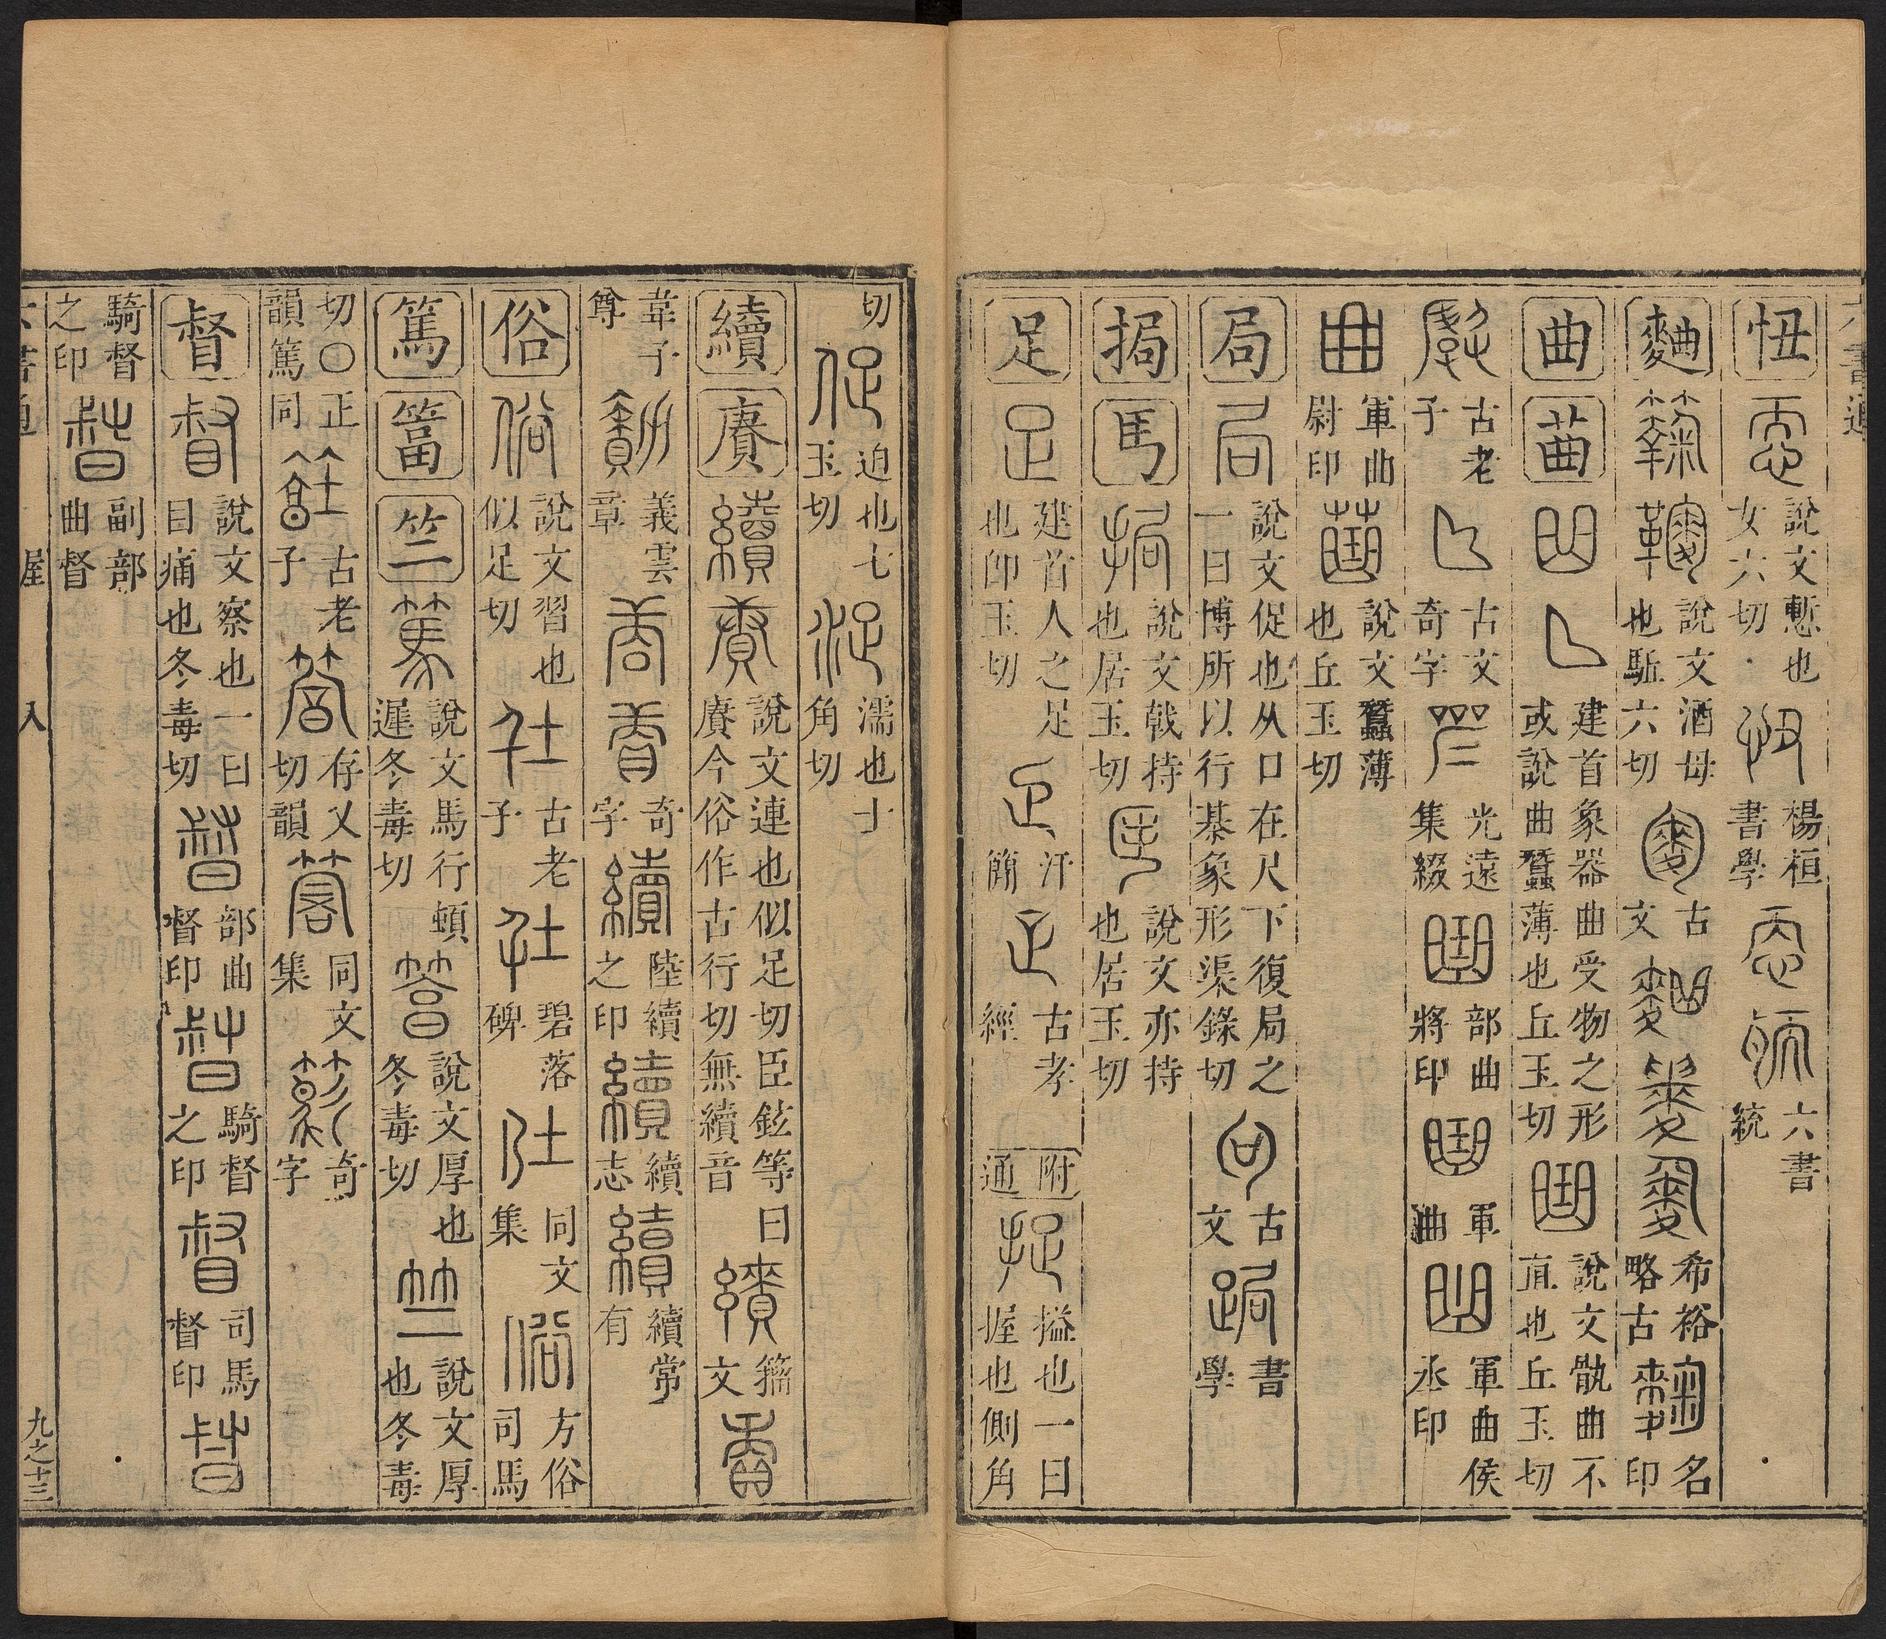 六書通
忸 說文慙也女六切 楊桓書學 六書統
麴 說文酒母也駈六切 古文 希裕略古 名印
曲 𦰹 建首象器曲受物之形或說曲蠶薄也丘玉切 說文骫曲不直也丘玉切
古老子 古文奇字 光遠集綴 部曲將印 軍曲 軍曲侯丞印
軍曲尉印 說文蠶薄也丘玉切
局 說文促也从口在尺下復局之一曰博所以行棊象形渠錄切 古文 書學
挶 說文戟持也居玉切 說文亦持也居玉切
足 建首人之足也卽玉切 汗簡 古孝經 附通 搤也一曰握也側角
切 迫也七玉切 濡也士角切
續 賡 說文連也似足切臣鉉等曰賡今俗作古行切無續音 籀文
韋子尊 義雲章 奇字 陸續之印 續續志 續常有
俗 說文習也似足切 古老子 碧落碑 同文集 方俗司馬
篤 䈞 竺 說文馬行頓遲冬毒切 說文厚也冬毒切 說文厚也冬毒
切○正韻篤同 古老子 存乂切韻 同文集 奇字
督 說文察也一曰目痛也冬毒切 部曲督印 騎督之印 司馬督印
騎督之印 副部曲督
六書通 屋 入 九之十三